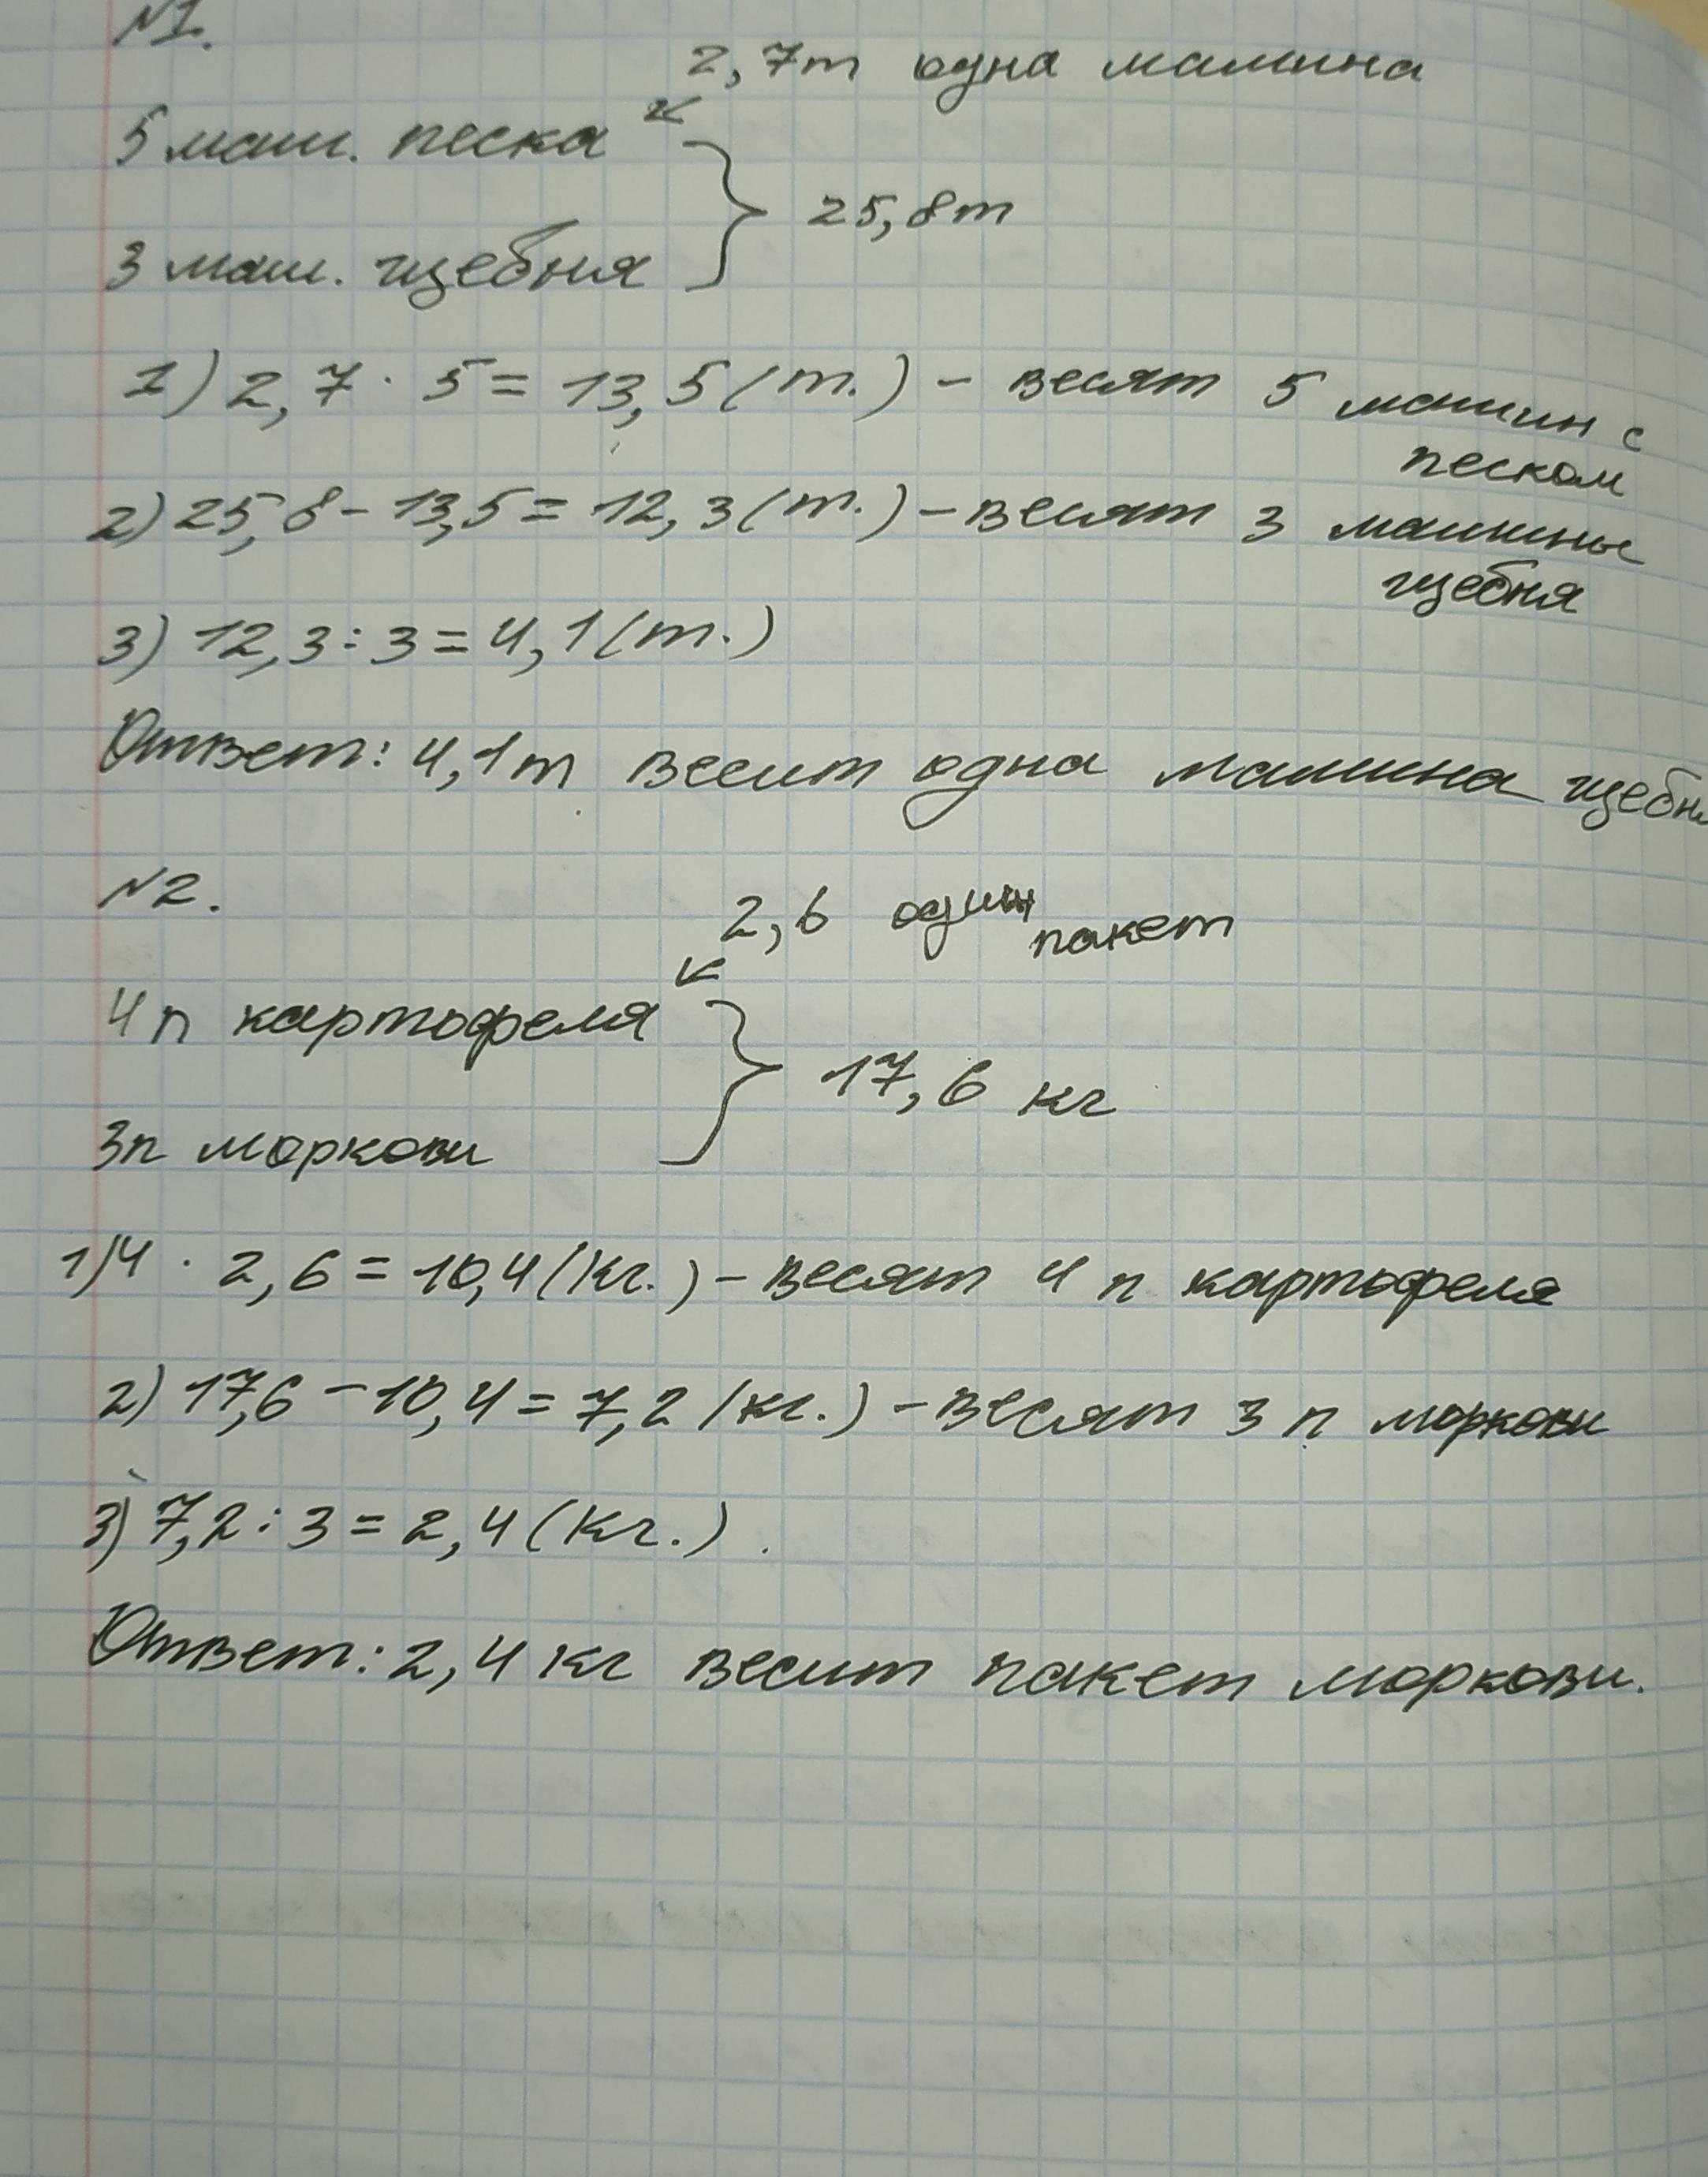 №1.
2,7т одна машина
5 маш. песка
25,8т
3 маш. щебня
1) 2,7 · 5 = 13,5 (т.) - весят 5 машин с
песком
2) 25,8 - 13,5 = 12,3 (т.) - весят 3 машины
щебня
3) 12,3 : 3 = 4,1 (т.)
Ответ: 4,1т весит одна машина щебн
№2.
2,6 один пакет
4п картофеля
17,6 кг
3п моркови
1) 4 · 2,6 = 10,4 (кг.) - весят 4 п картофеля
2) 17,6 - 10,4 = 7,2 (кг.) - весят 3 п моркови
3) 7,2 : 3 = 2,4 (кг.).
Ответ: 2,4 кг весит пакет моркови.